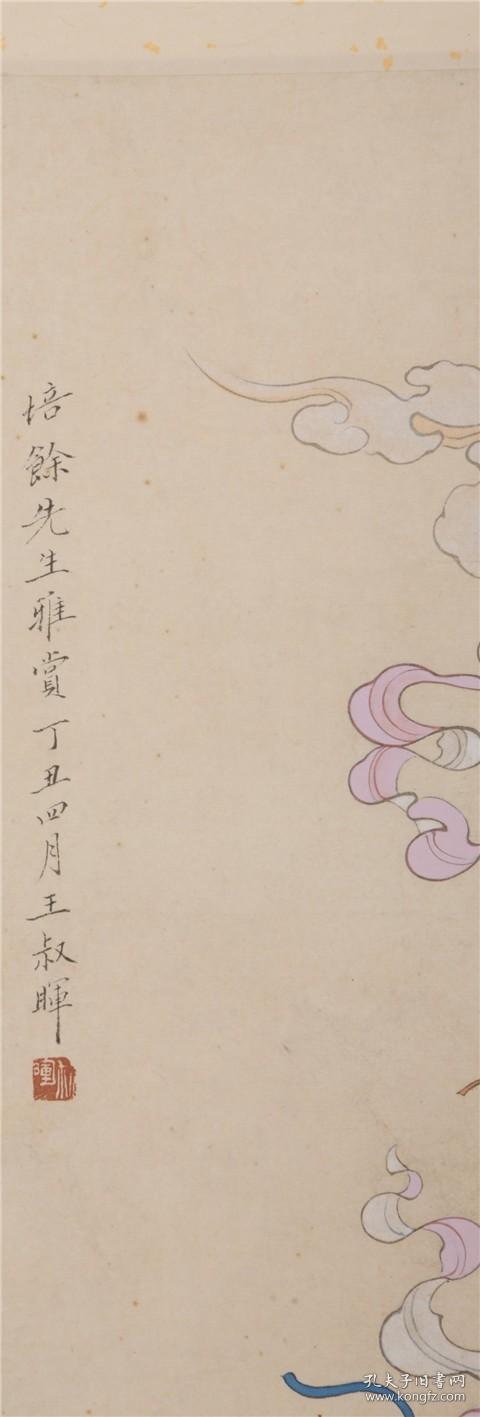 培餘先生雅賞丁丑四月王叔暉
叔暉
孔夫子旧书网
www.kongfz.com